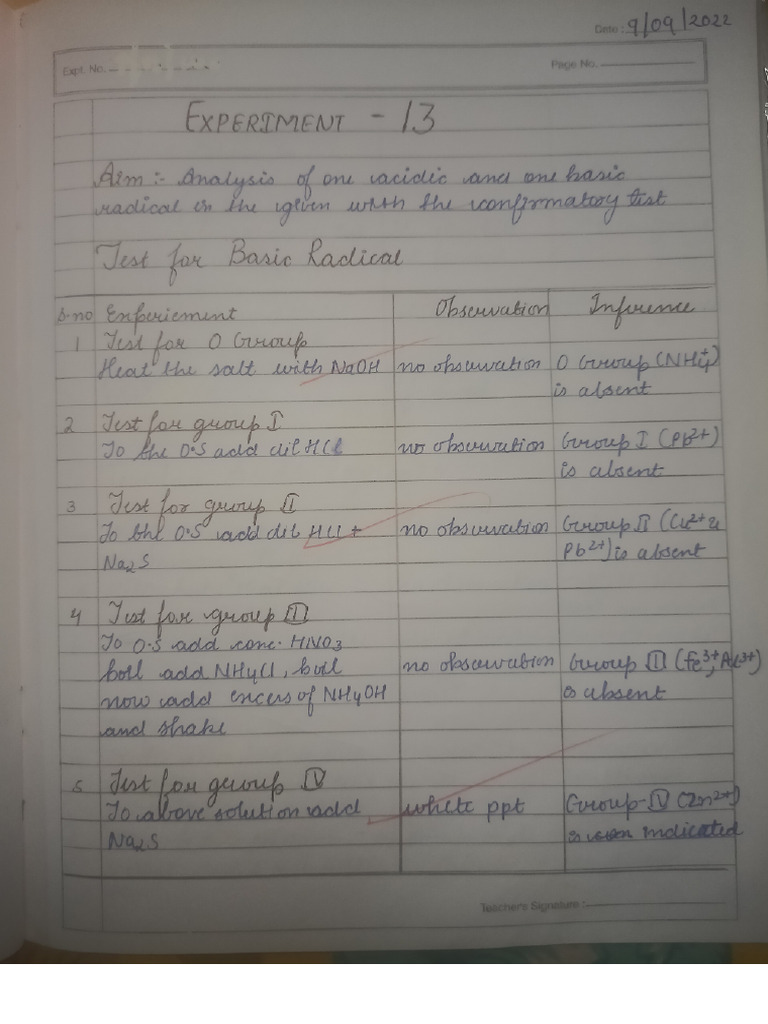 Date : 9/09/2022
Expt. No.
Page No.
EXPERIMENT - 13
Aim :- Analysis of one acidic and one basic
radical in the given with the confirmatory test
Test for Basic Radical
S.no Experiement Observation Inference
1 Test for O Group
Heat the salt with NaOH no observation O Group (NH4+)
is absent
2 Test for group I
To the O.S add dil HCl no observation Group I (Pb2+)
is absent
3 Test for group II
To the O.S add dil HCl + no observation Group II (Cu2+ &
Na2S Pb2+) is absent
4 Test for group III
To O.S add conc. HNO3
boil add NH4Cl, boil no observation Group III (Fe3+, Al3+)
now add excess of NH4OH is absent
and shake
5 Test for group IV
To above solution add white ppt Group-IV (Zn2+)
Na2S is indicated
Teacher's Signature :